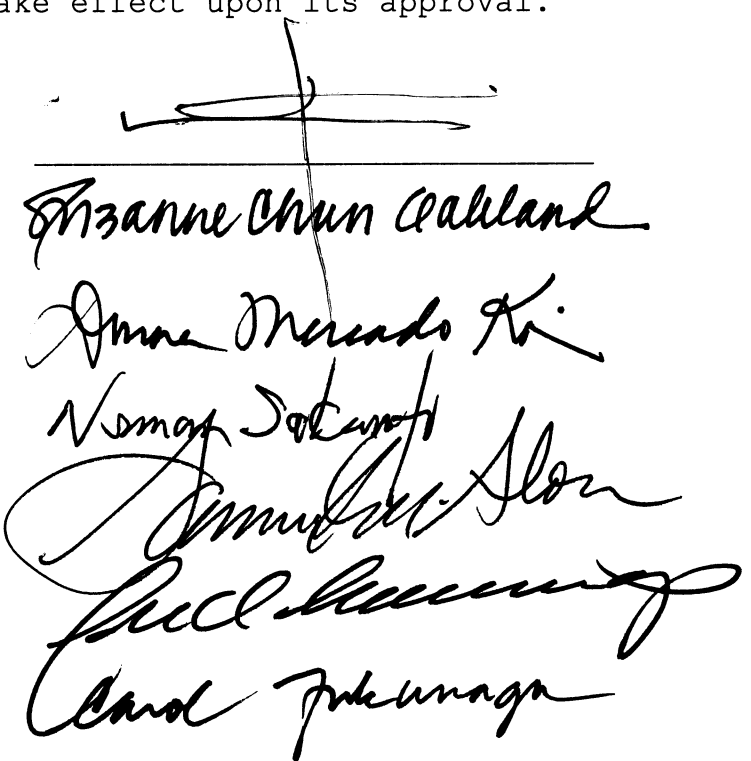 ake effect upon its approval.
Suzanne Chun Oakland
Donna Mercado Kim
Norman Sakamoto
Slom
Fred Hemmings
Carol Fukunaga